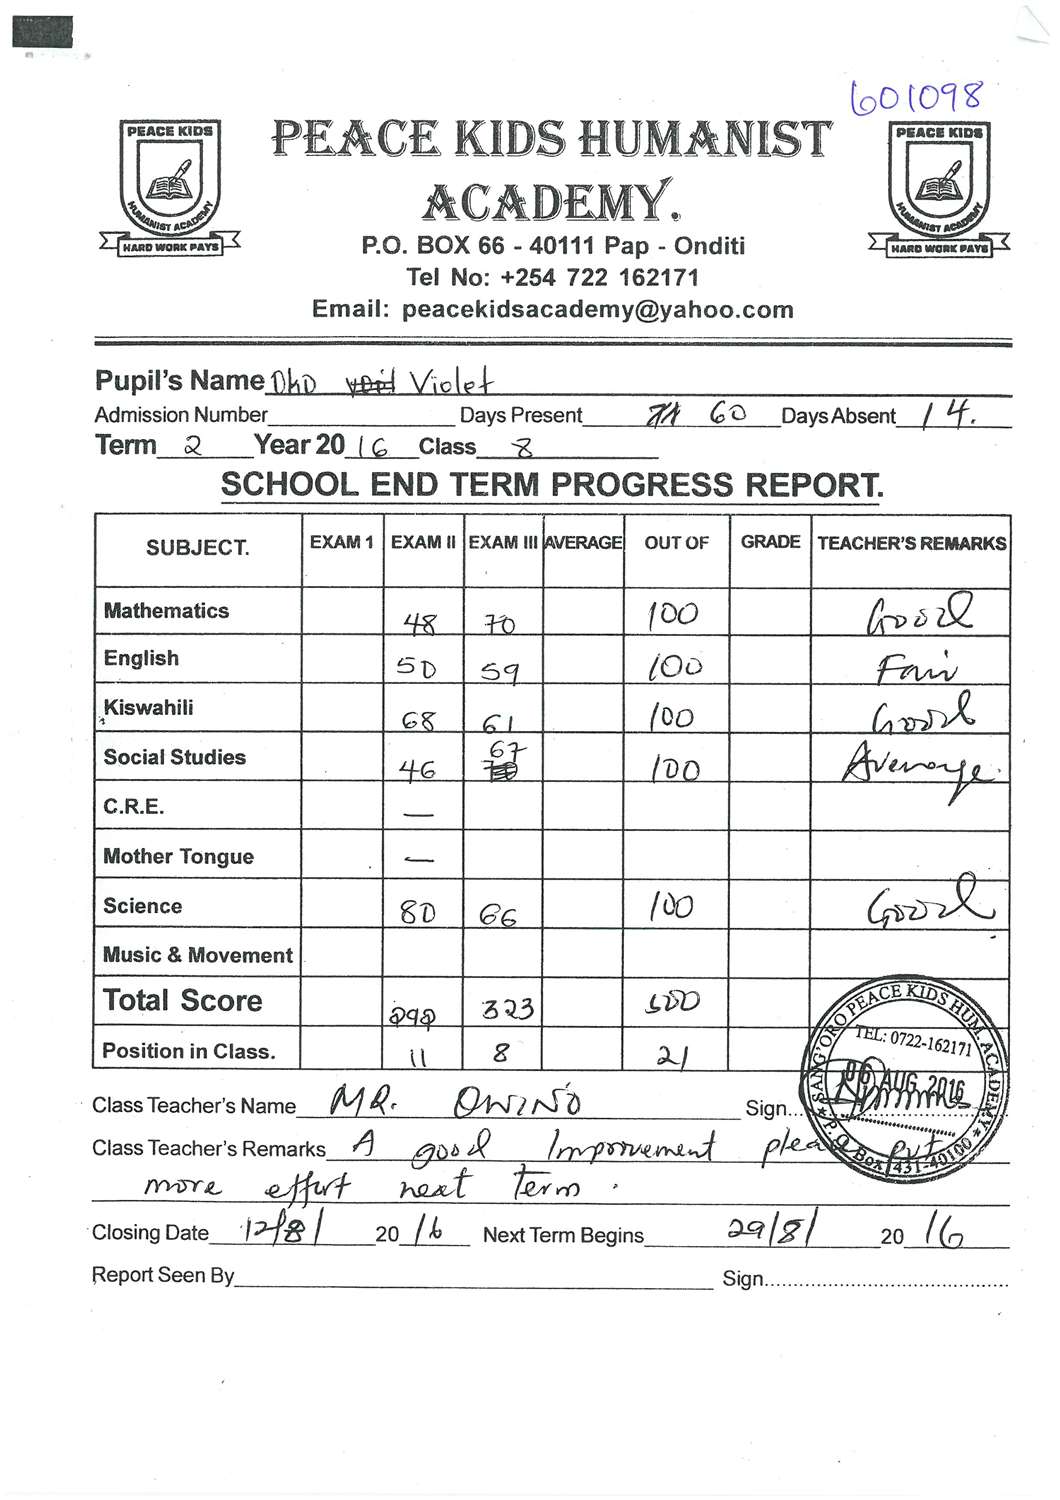 601098
PEACE KIDS
HUMANIST ACADEMY
HARD WORK PAYS
PEACE KIDS HUMANIST
ACADEMY.
PEACE KIDS
HUMANIST ACADEMY
HARD WORK PAYS
P.O. BOX 66 - 40111 Pap - Onditi
Tel No: +254 722 162171
Email: peacekidsacademy@yahoo.com
Pupil's Name Violet
Admission Number Days Present 60 Days Absent 14.
Term 2 Year 2016 Class 8
SCHOOL END TERM PROGRESS REPORT.
SUBJECT. EXAM 1 EXAM II EXAM III AVERAGE OUT OF GRADE TEACHER'S REMARKS
Mathematics 48 70 100 Good
English 50 59 100 Fair
Kiswahili 68 61 100 Good
Social Studies 46 67 100 Average.
C.R.E. —
Mother Tongue —
Science 80 66 100 Good
Music & Movement
Total Score 292 323 500
Position in Class. 11 8 21
SANG'ORO PEACE KIDS HUM. ACADEMY
TEL: 0722-162171
06 AUG 2016
P.O. Box 431-40100
Class Teacher's Name MR. OWINO Sign...
Class Teacher's Remarks A good Improvement put
more effort next term.
Closing Date 12/8/ 2016 Next Term Begins 29/8/ 2016
Report Seen By Sign...